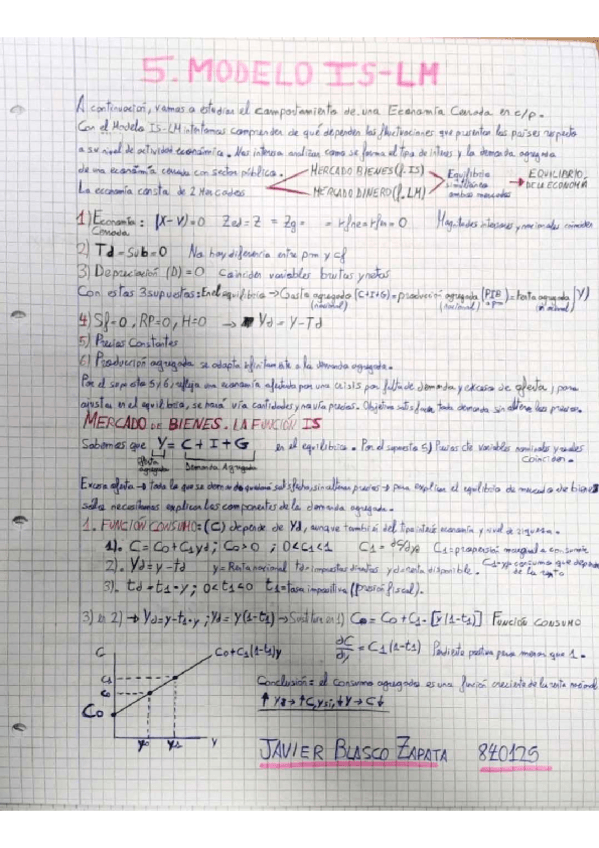 5. MODELO IS-LM
A continuación, vamos a estudiar el comportamiento de una Economía Cerrada en c/p.
Con el Modelo IS-LM intentamos comprender de qué dependen las fluctuaciones que presentan los países respecto
a su nivel de actividad económica. Nos interesa analizar como se forma el tipo de interés y la demanda agregada
de una economía cerrada con sector público.
La economía consta de 2 Mercados
MERCADO BIENES (f. IS)
MERCADO DINERO (f. LM)
Equilibrio simultáneo ambos mercados
EQUILIBRIO DE LA ECONOMÍA
1) Economía Cerrada: (X-V)=0 Zed=Z = Zg= = rfne=rfm=0 Magnitudes interiores y nacionales coinciden
2) Td=Sub=0 No hay diferencia entre pm y cf
3) Depreciación (D)=0 Coinciden variables brutas y netas
Con estas 3 supuestas: En el equilibrio → Gasto agregado (C+I+G) = producción agregada (PIB) = Renta agregada (Y)
(nacional) (nacional) (nacional)
4) Sf=0, RP=0, H=0 → Yd=Y-Td
5) Precios Constantes
6) Producción agregada se adapta infinitamente a la demanda agregada.
Por el supuesto 5 y 6, refleja una economía afectada por una crisis por falta de demanda y exceso de oferta, para
ajustes en el equilibrio, se hará vía cantidades y no vía precios. Objetivo satisfacer toda demanda sin alterar los precios.
MERCADO DE BIENES. LA FUNCIÓN IS
Sabemos que Y = C + I + G en el equilibrio. Por el supuesto 5) Precios cte variables nominales y reales
coinciden.
Oferta agregada Demanda Agregada
Exceso oferta → toda la que se demanda quedará satisfecha, sin alterar precios → para explicar el equilibrio de mercado de bienes
solo necesitamos explicar los componentes de la demanda agregada.
1. FUNCIÓN CONSUMO = (C) depende de Yd, aunque también del tipo interés economía y nivel de riqueza.
1). C = C0 + C1yd; C0>0 ; 0<C1<1 C1 = C1 = propensión marginal a consumir
2). Yd = y - td y = Renta nacional td = impuestos directos yd = renta disponible.
3). td = t1·y ; 0<t1<0 t1 = tasa impositiva (presión fiscal).
3) en 2) → Yd = y - t1·y ; Yd = y(1-t1) → Sustituir en 1) C = C0 + C1·[y(1-t1)] FUNCIÓN CONSUMO
C
C0+C1(1-t1)y
dC/dy = C1(1-t1) Pendiente positiva pero menor que 1.
C1
C0
C0
Conclusión = el consumo agregado es una función creciente de la renta nacional
↑Yd → ↑C, y si ↓Y → C↓
y0 y1 y
JAVIER BLASCO ZAPATA 840125